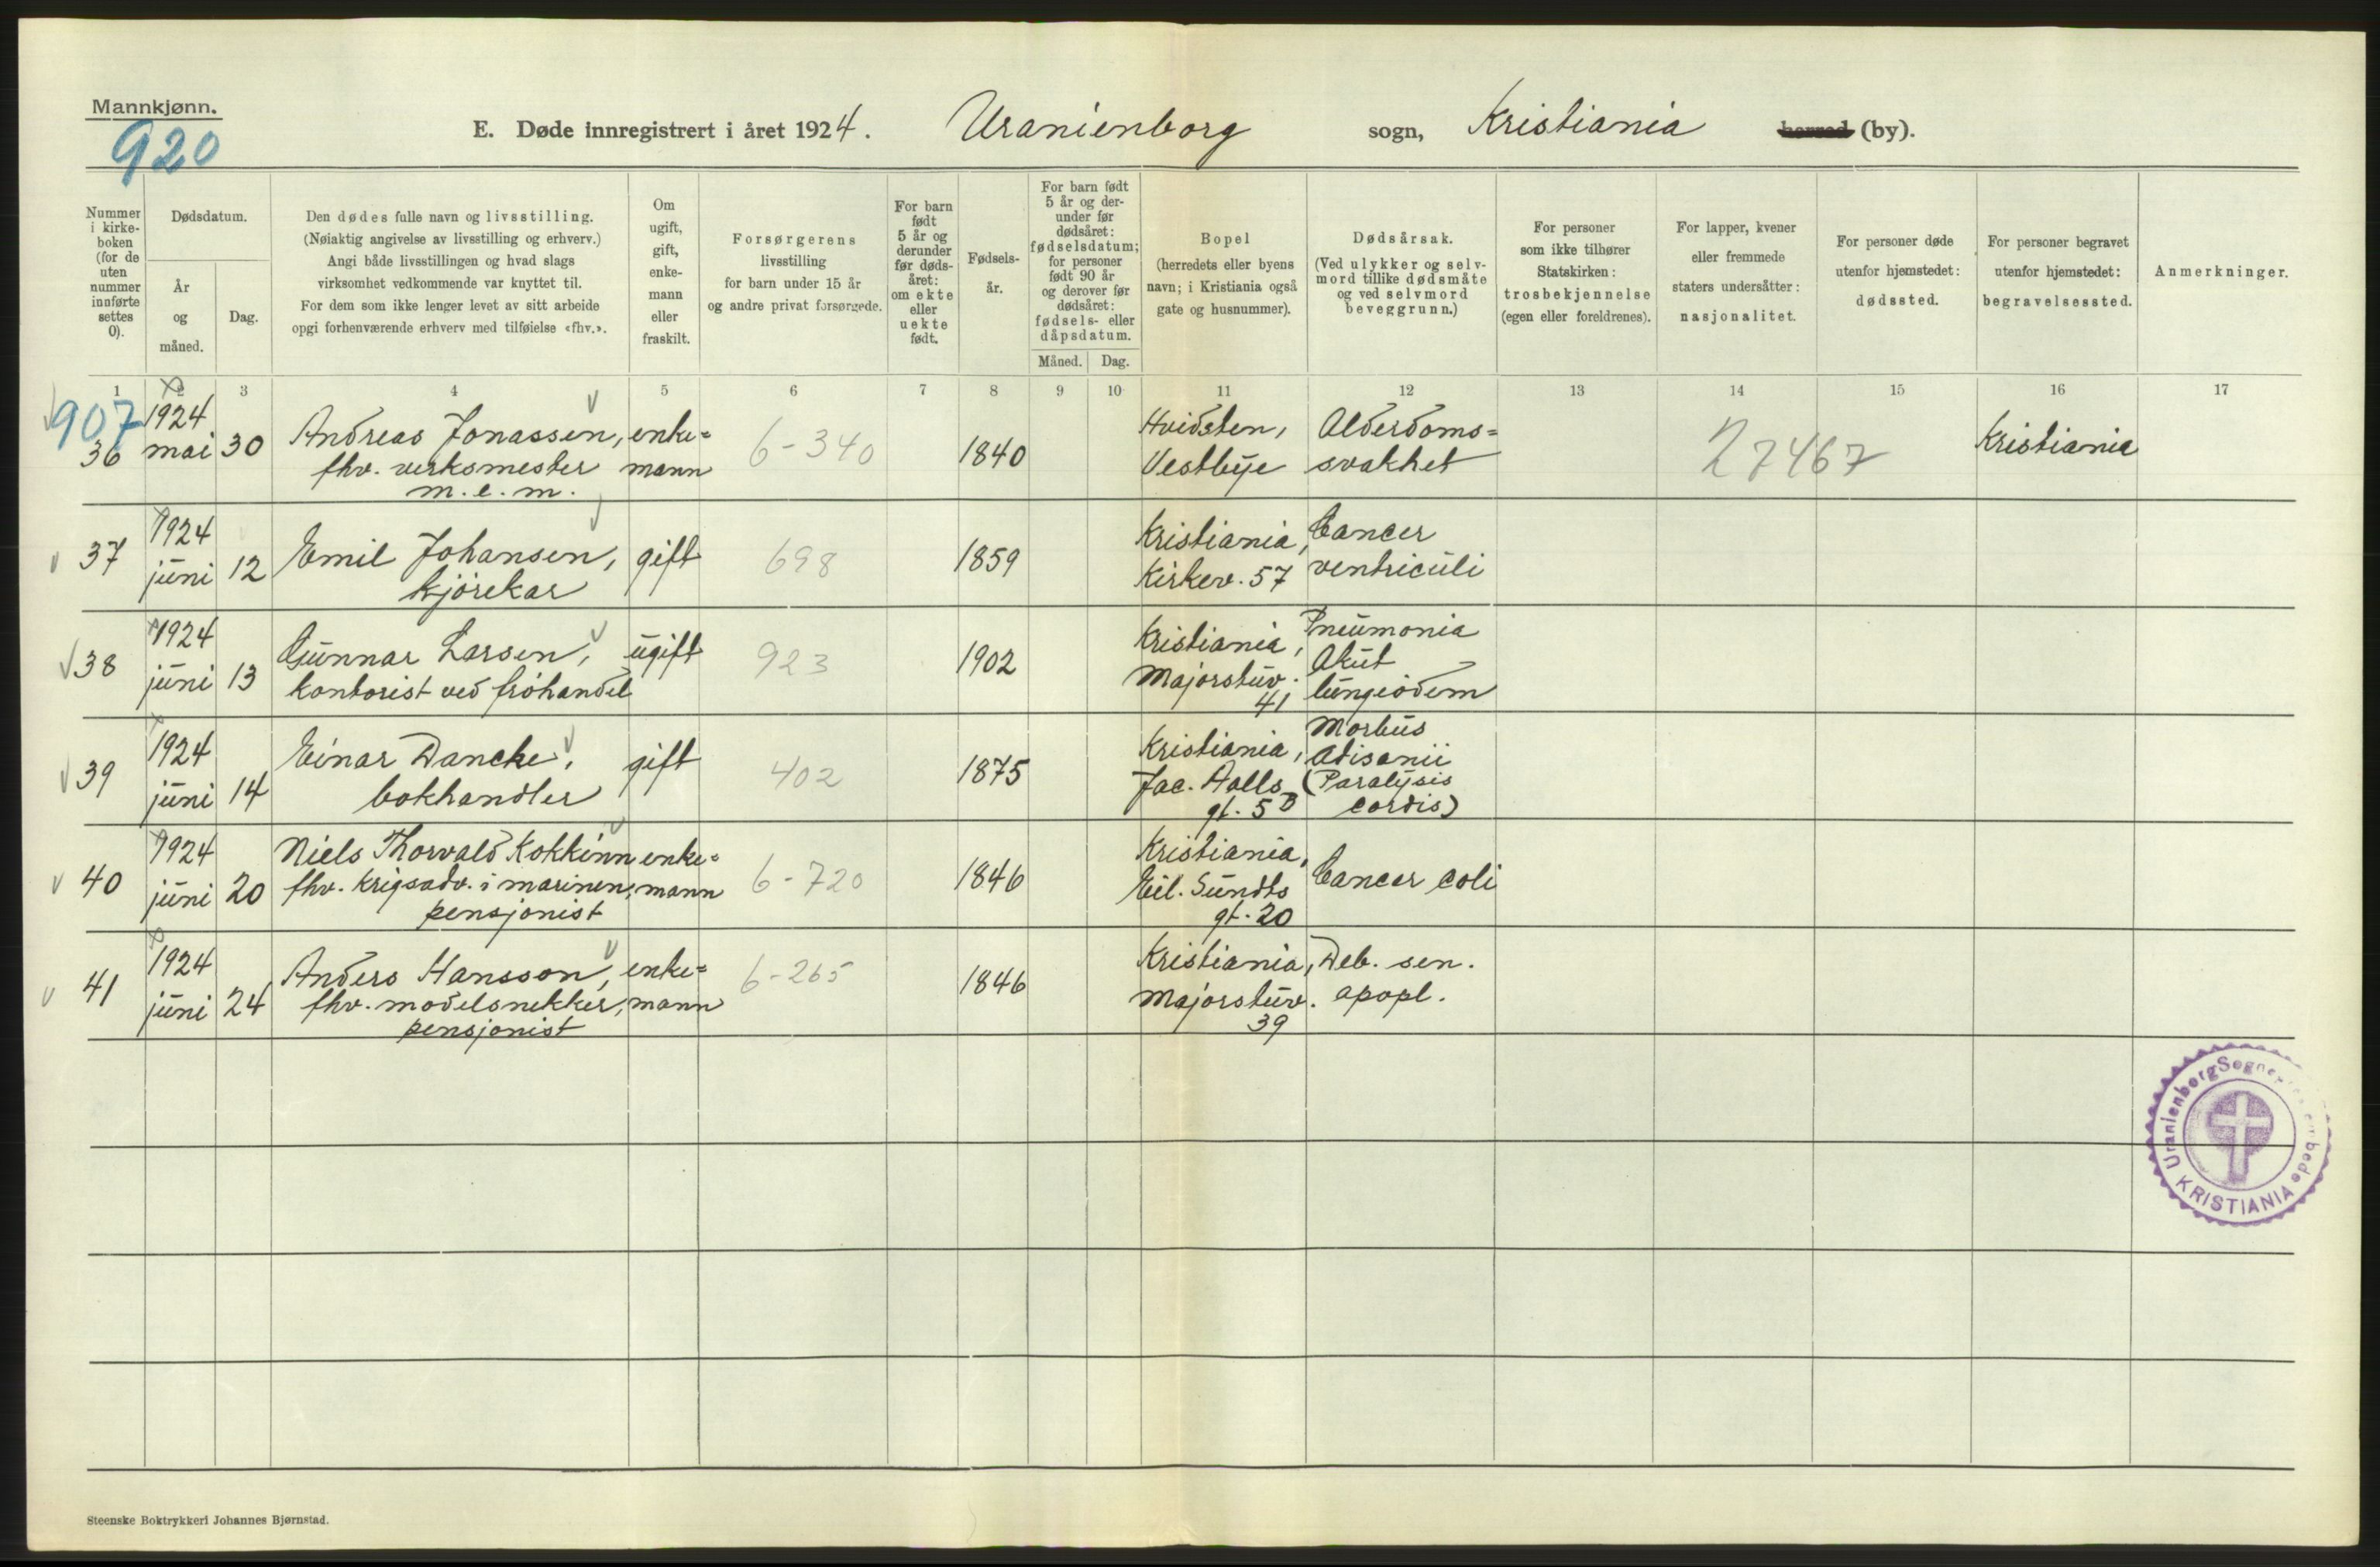 Mannkjønn.
920
E. Døde innregistrert i året 1924. Uranienborg sogn, Kristiania herred (by).
Nummer i kirke-boken (for de uten nummer innførte settes 0).
Dødsdatum.
År og måned.
Dag.
Den dødes fulle navn og livsstilling.
(Nøiaktig angivelse av livsstilling og erhverv.)
Angi både livsstillingen og hvad slags
virksomhet vedkommende var knyttet til.
For dem som ikke lenger levet av sitt arbeide
opgi forhenværende erhverv med tilføielse «fhv.».
Om ugift, gift, enke-mann eller fraskilt.
Forsørgerens
livsstilling
for barn under 15 år
og andre privat forsørgede.
For barn født 5 år og derunder før døds-året: om ekte eller uekte født.
Fødsels-år.
For barn født 5 år og der-under før dødsåret: fødselsdatum; for personer født 90 år og derover før dødsåret: fødsels- eller dåpsdatum.
Måned. Dag.
Bopel
(herredets eller byens
navn; i Kristiania også
gate og husnummer).
Dødsårsak.
(Ved ulykker og selv-
mord tillike dødsmåte
og ved selvmord
beveggrunn.)
For personer
som ikke tilhører
Statskirken:
trosbekjennelse
(egen eller foreldrenes).
For lapper, kvener
eller fremmede
staters undersåtter:
nasjonalitet.
For personer døde
utenfor hjemstedet:
dødssted.
For personer begravet
utenfor hjemstedet:
begravelsessted.
Anmerkninger.
1 2 3 4 5 6 7 8 9 10 11 12 13 14 15 16 17
907
36 1924 mai 30 Andreas Jonassen, fhv. verksmester m.e.m. enke=mann 6-340 1840 Hvidsten, Vestbye Alderdoms=svakhet 27467 Kristiania
37 1924 juni 12 Emil Johansen, kjørekar gift 698 1859 Kristiania, Kirkev. 57 Cancer ventriculi
38 1924 juni 13 Gunnar Larsen, kontorist ved frøhandel ugift 923 1902 Kristiania, Majorstuv. 41 Pneumonia Akut lungeødem
39 1924 juni 14 Einar Dancke, bokhandler gift 402 1875 Kristiania, Jac. Aalls gt. 5 B Morbus Adisonii (Paralysis cordis)
40 1924 juni 20 Niels Thorvald Kokkinn fhv. krigsadv. i marinen, pensjonist enke=mann 6-720 1846 Kristiania, Eil. Sundts gt. 20 Cancer coli
41 1924 juni 24 Anders Hansson, fhv. modelsnekker, pensjonist enke=mann 6-265 1846 Kristiania, Majorstuv. 39 Deb. sen. apopl.
Uranienborg
KRISTIANIA
Steenske Boktrykkeri Johannes Bjørnstad.